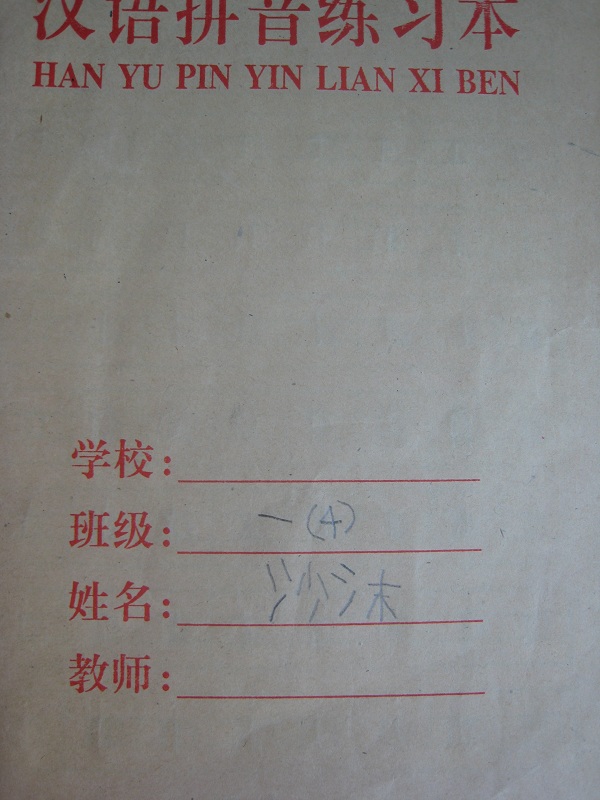 汉语拼音练习本
HAN YU PIN YIN LIAN XI BEN
学校:
班级: 一(4)
姓名: 沙沫
教师: